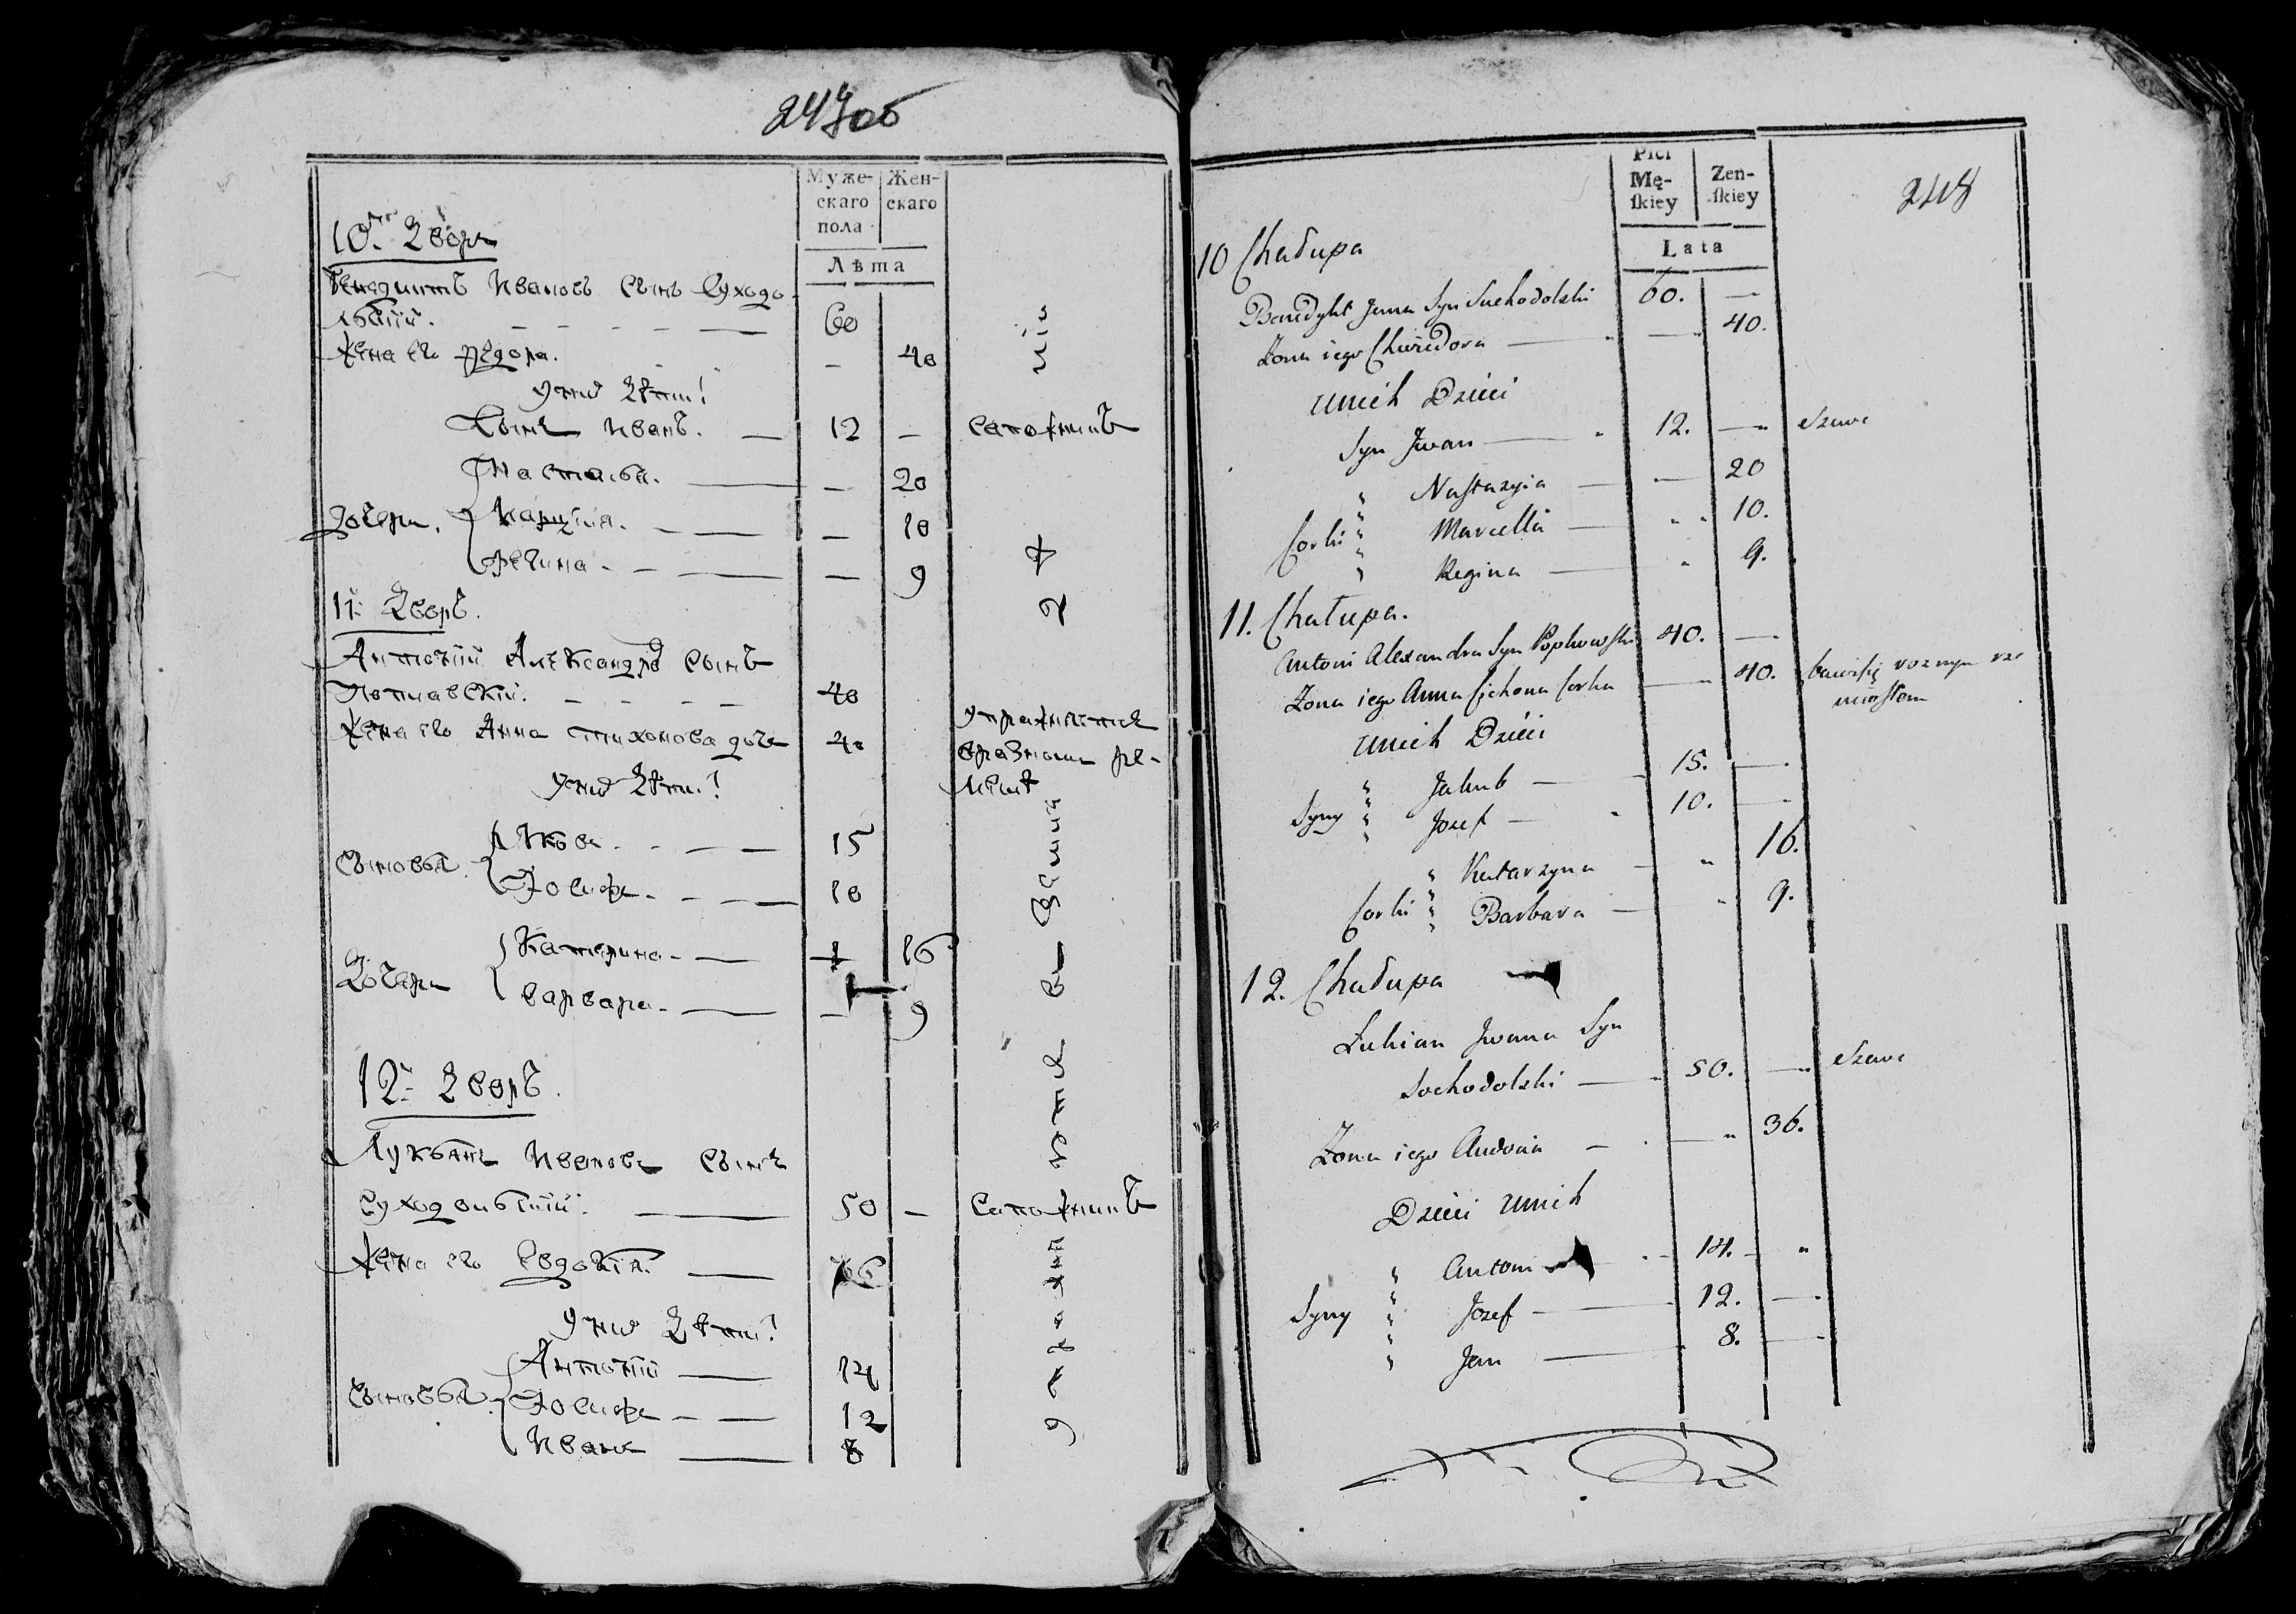 247об
Муже-
скаго
пола
Жен-
скаго
Лѣта
10й Дворъ
Бенедиктъ Ивановъ Сынъ Суходо-
льскій. 60
Жена его Ѳедора. 40
У нихъ Дѣти!
Сынъ Иванъ. 12 сапожникъ
Настасья. 20
Дочери.
10
Регина 9
11й Дворъ.
Антоній Александра Сынъ
40
Жена его Анна Тихонова дочь 40
упражняется
в разномъ ре-
меслѣ
У нихъ Дѣти!
Яковъ 15
Сыновья
Іосифъ 10
Катерина 16
Дочери
Варвара 9
12й Дворъ.
Лукьянъ Ивановъ Сынъ
Суходольскій. 50 Сапожникъ
Жена его Евдокія. 36
У нихъ Дѣти!
Антоній 14
Сыновья Іосифъ 12
Иванъ 8
упражняются въ
248
Płci
Mę-
ſkiey
Zen-
ſkiey
Lata
10 Chałupa
Banedykt Jana Syn Suchodolski 60. —
Zona iego Chwiedora — 40.
Unich Dzieci
Syn Jwan 12. — Szewc
" Nastazyia — 20
Corki " Marcella " 10.
" Regina " 9.
11. Chałupa.
Antoni Alexandra Syn Popkowski 40. —
Zona iego Anna Cichona Corka — 40. bawi się roznym rze
miosłem
Unich Dzieci
" Jakub 15. —
Syny " Jozef 10. —
" Katarzyna " 16.
Corki " Barbara " 9.
12. Chałupa
Łukian Jwana Syn
Sochodolski 50. — Szewc
Zona iego Audocia — 36.
Dzieci Unich
" Antoni 14. "
Syny " Jozef 12. —
" Jan 8. —